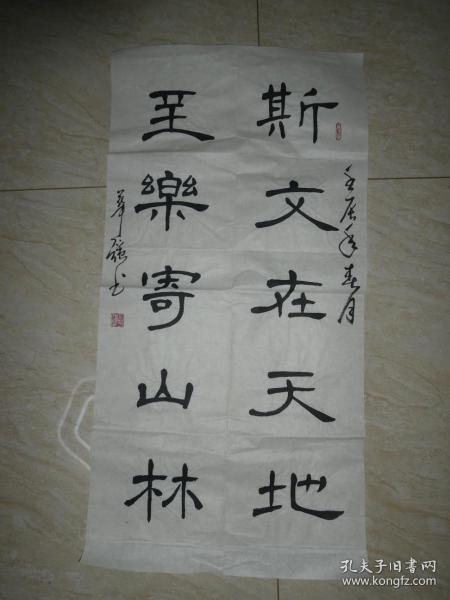 壬辰年春月
斯文在天地
至樂寄山林
孔夫子旧书网
www.kongfz.com